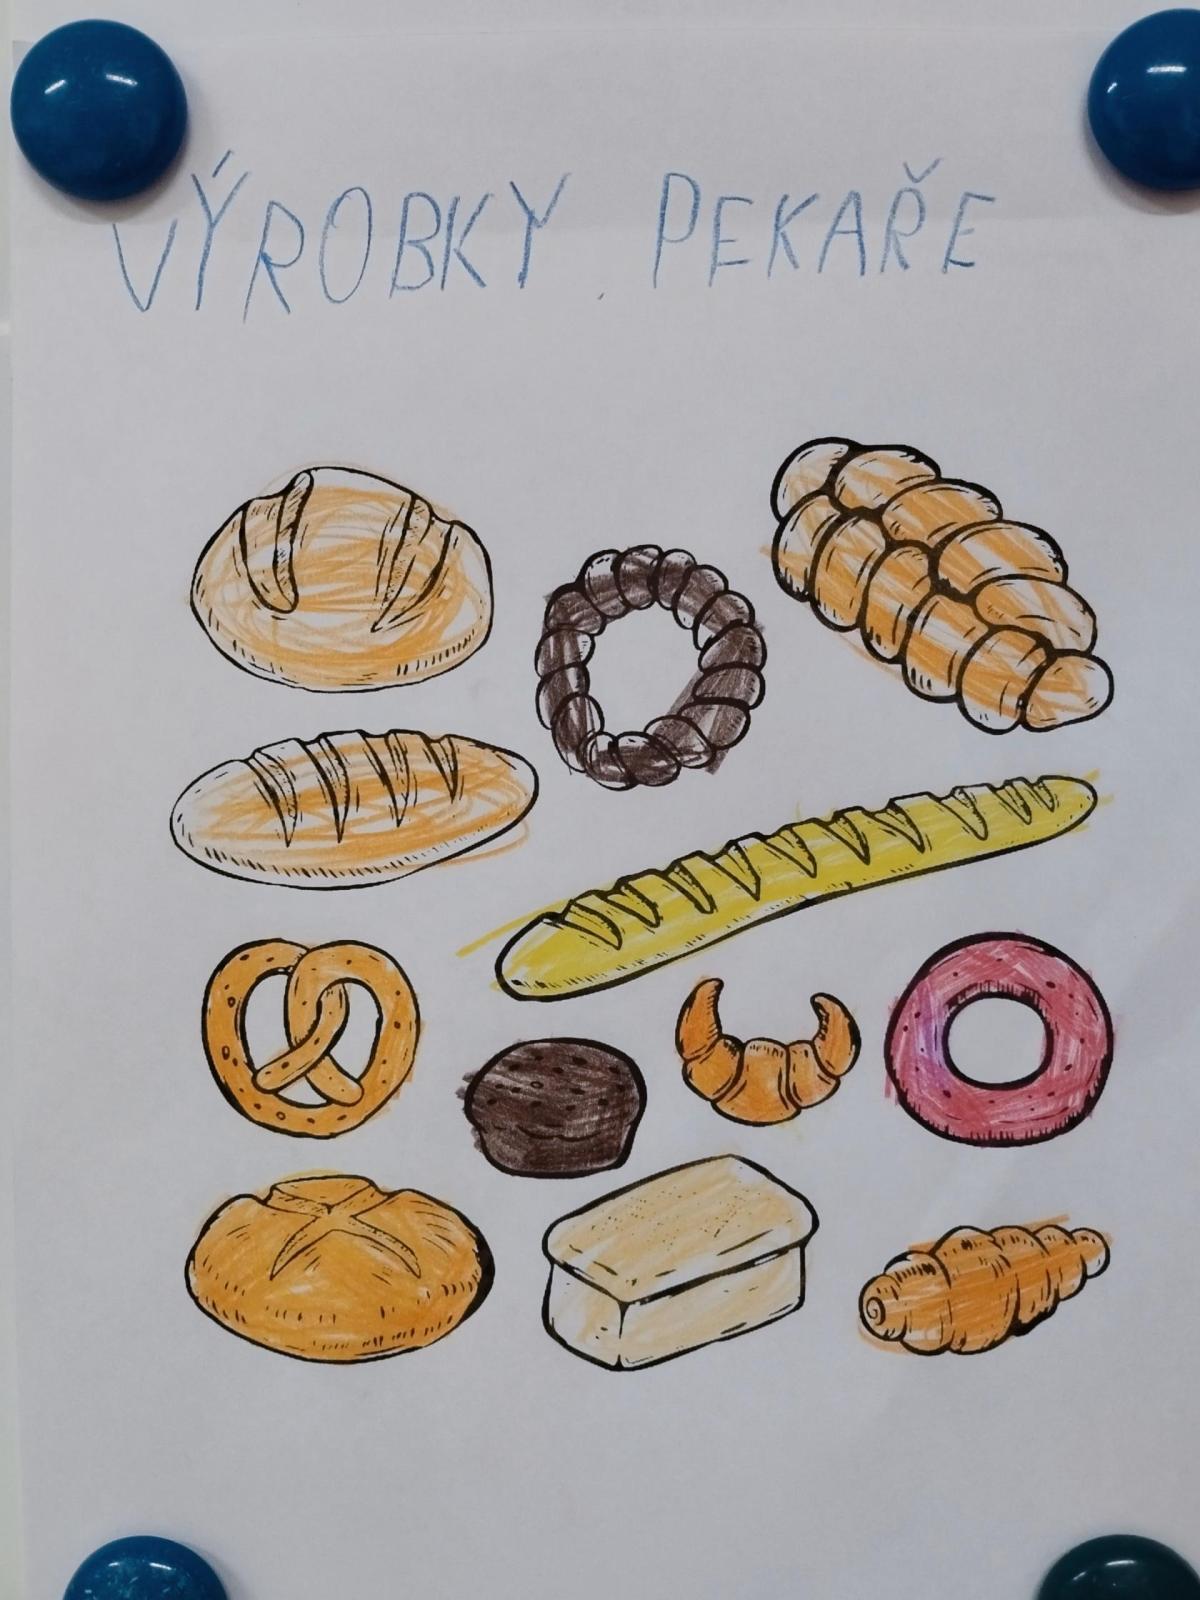 VÝROBKY PEKAŘE